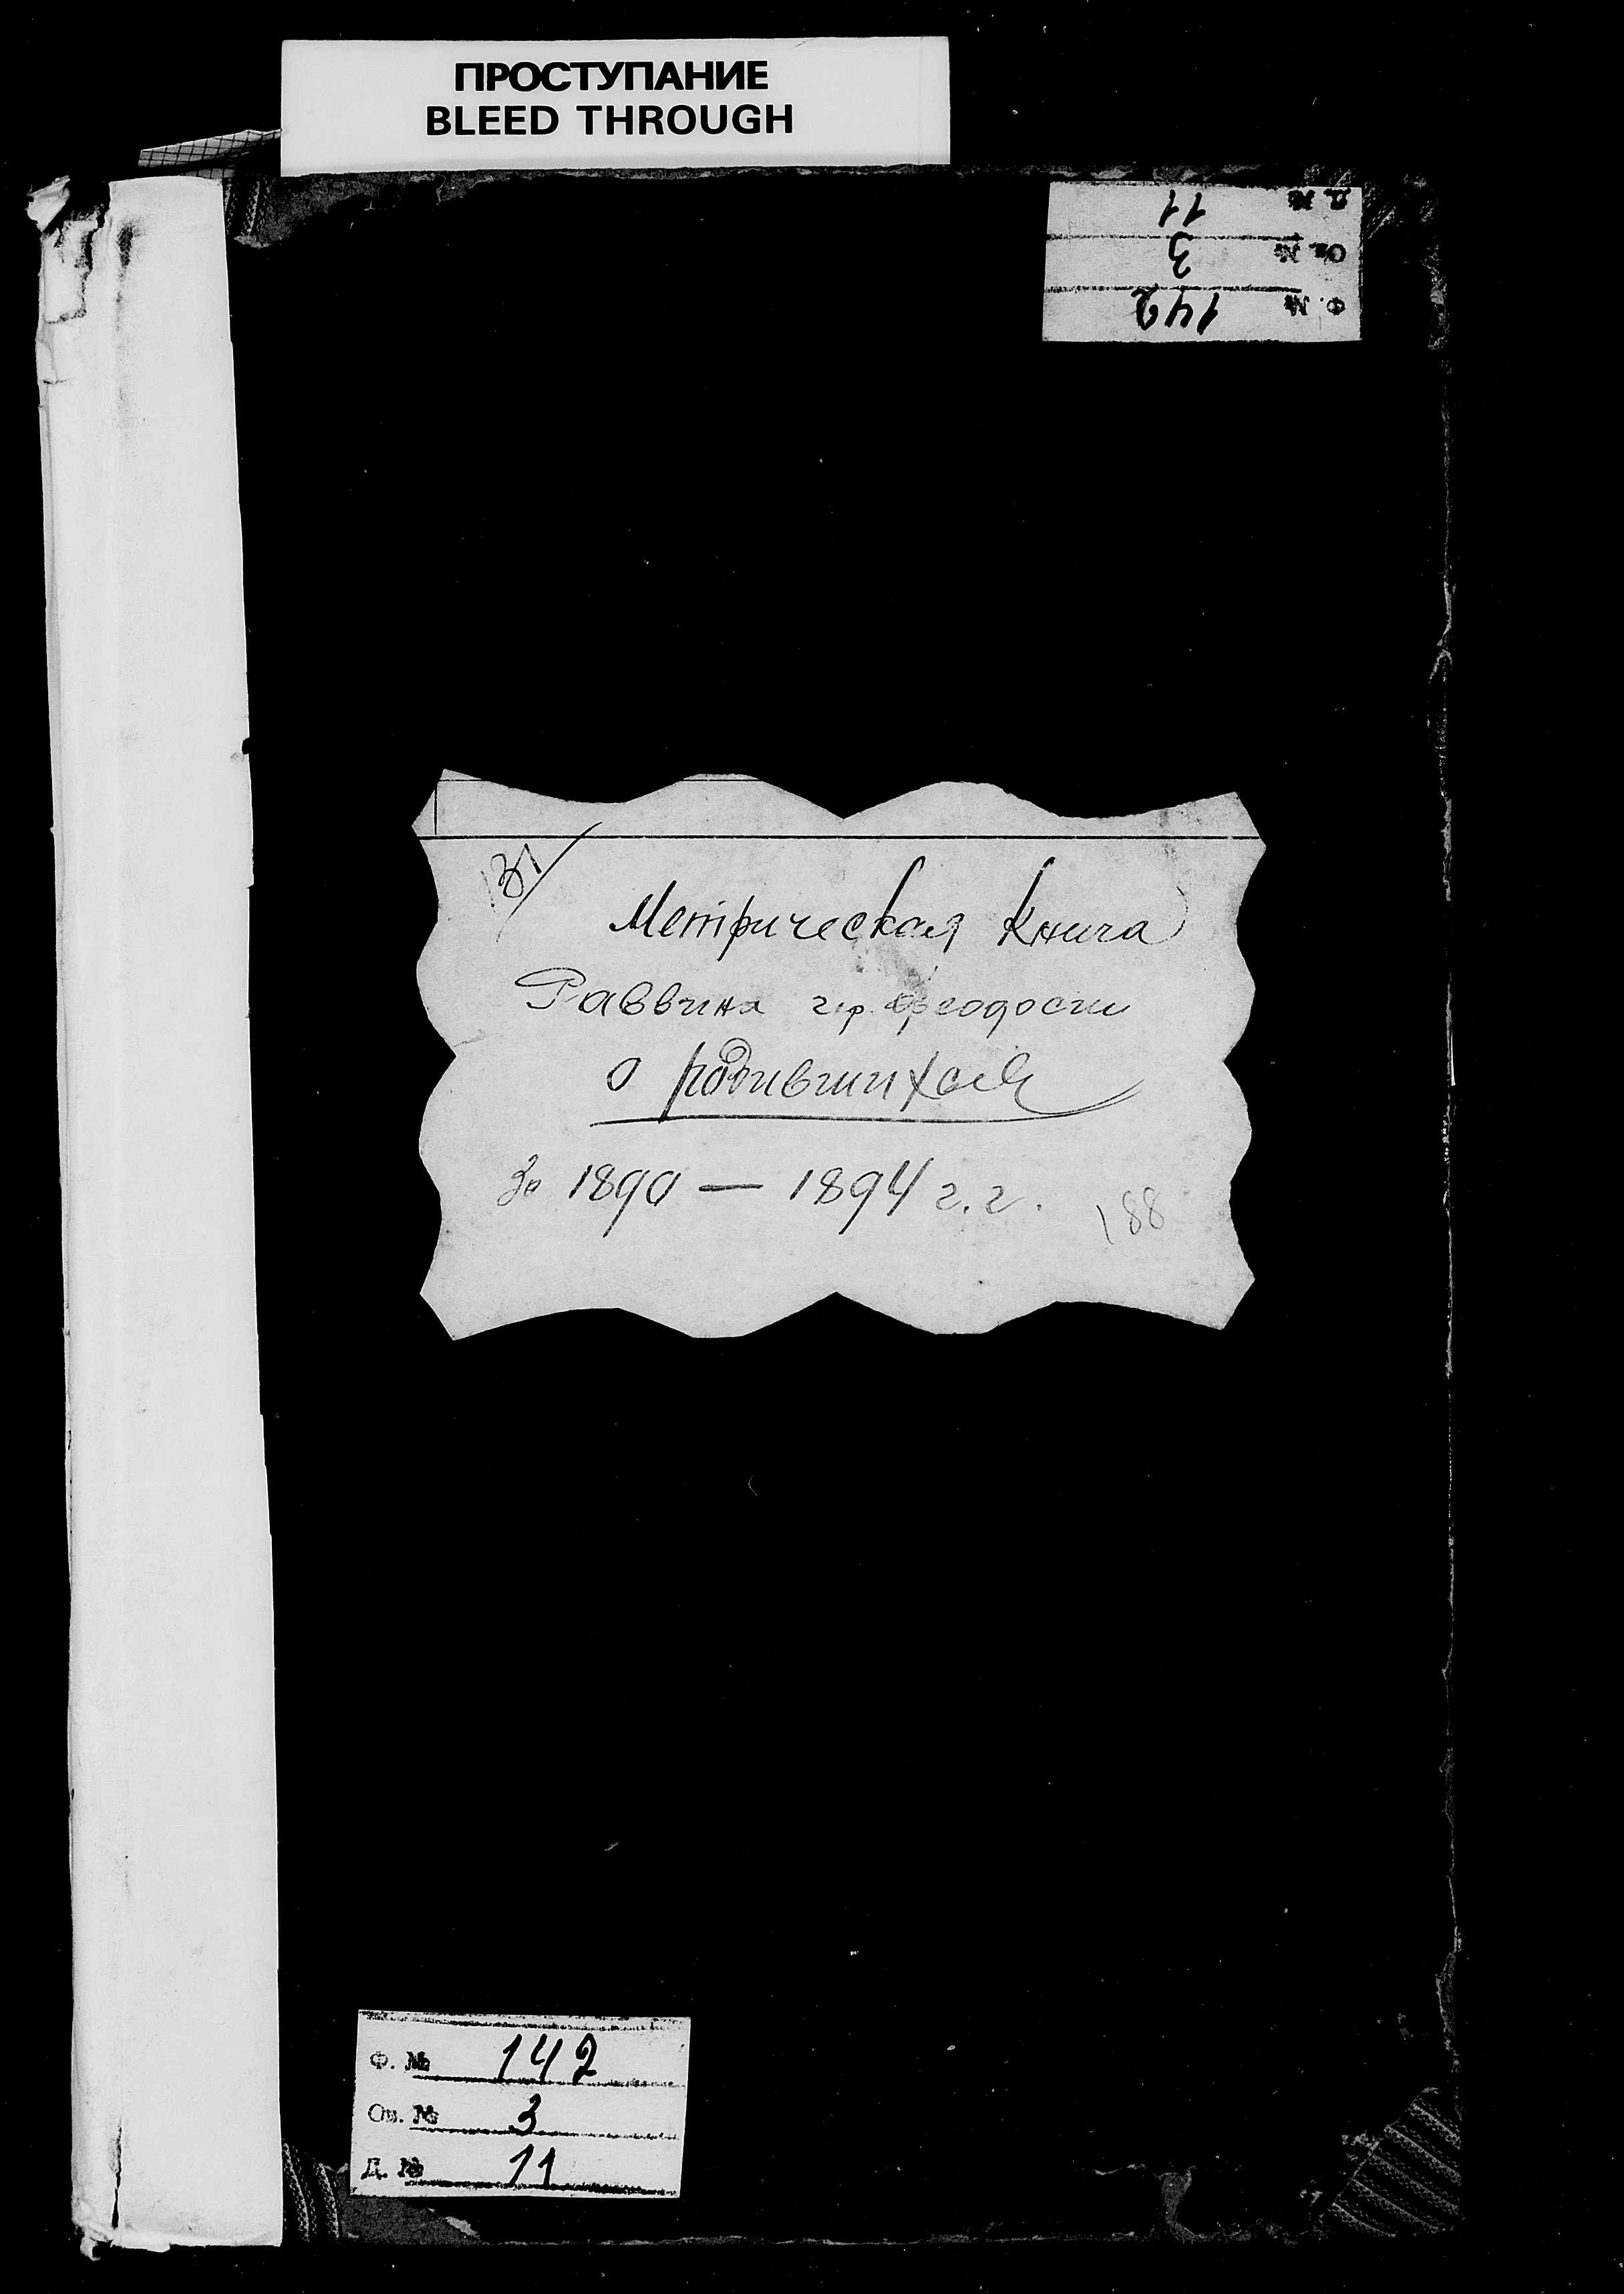 ПРОСТУПАНИЕ
BLEED THROUGH
Д. № 11
Оп. № 3
Ф. № 142
131
Метрическая Книга
Раввина гор. Феодосии
о родившихся
За 1890 — 1894 г.г.
188
Ф. № 142
Оп. № 3
Д. № 11